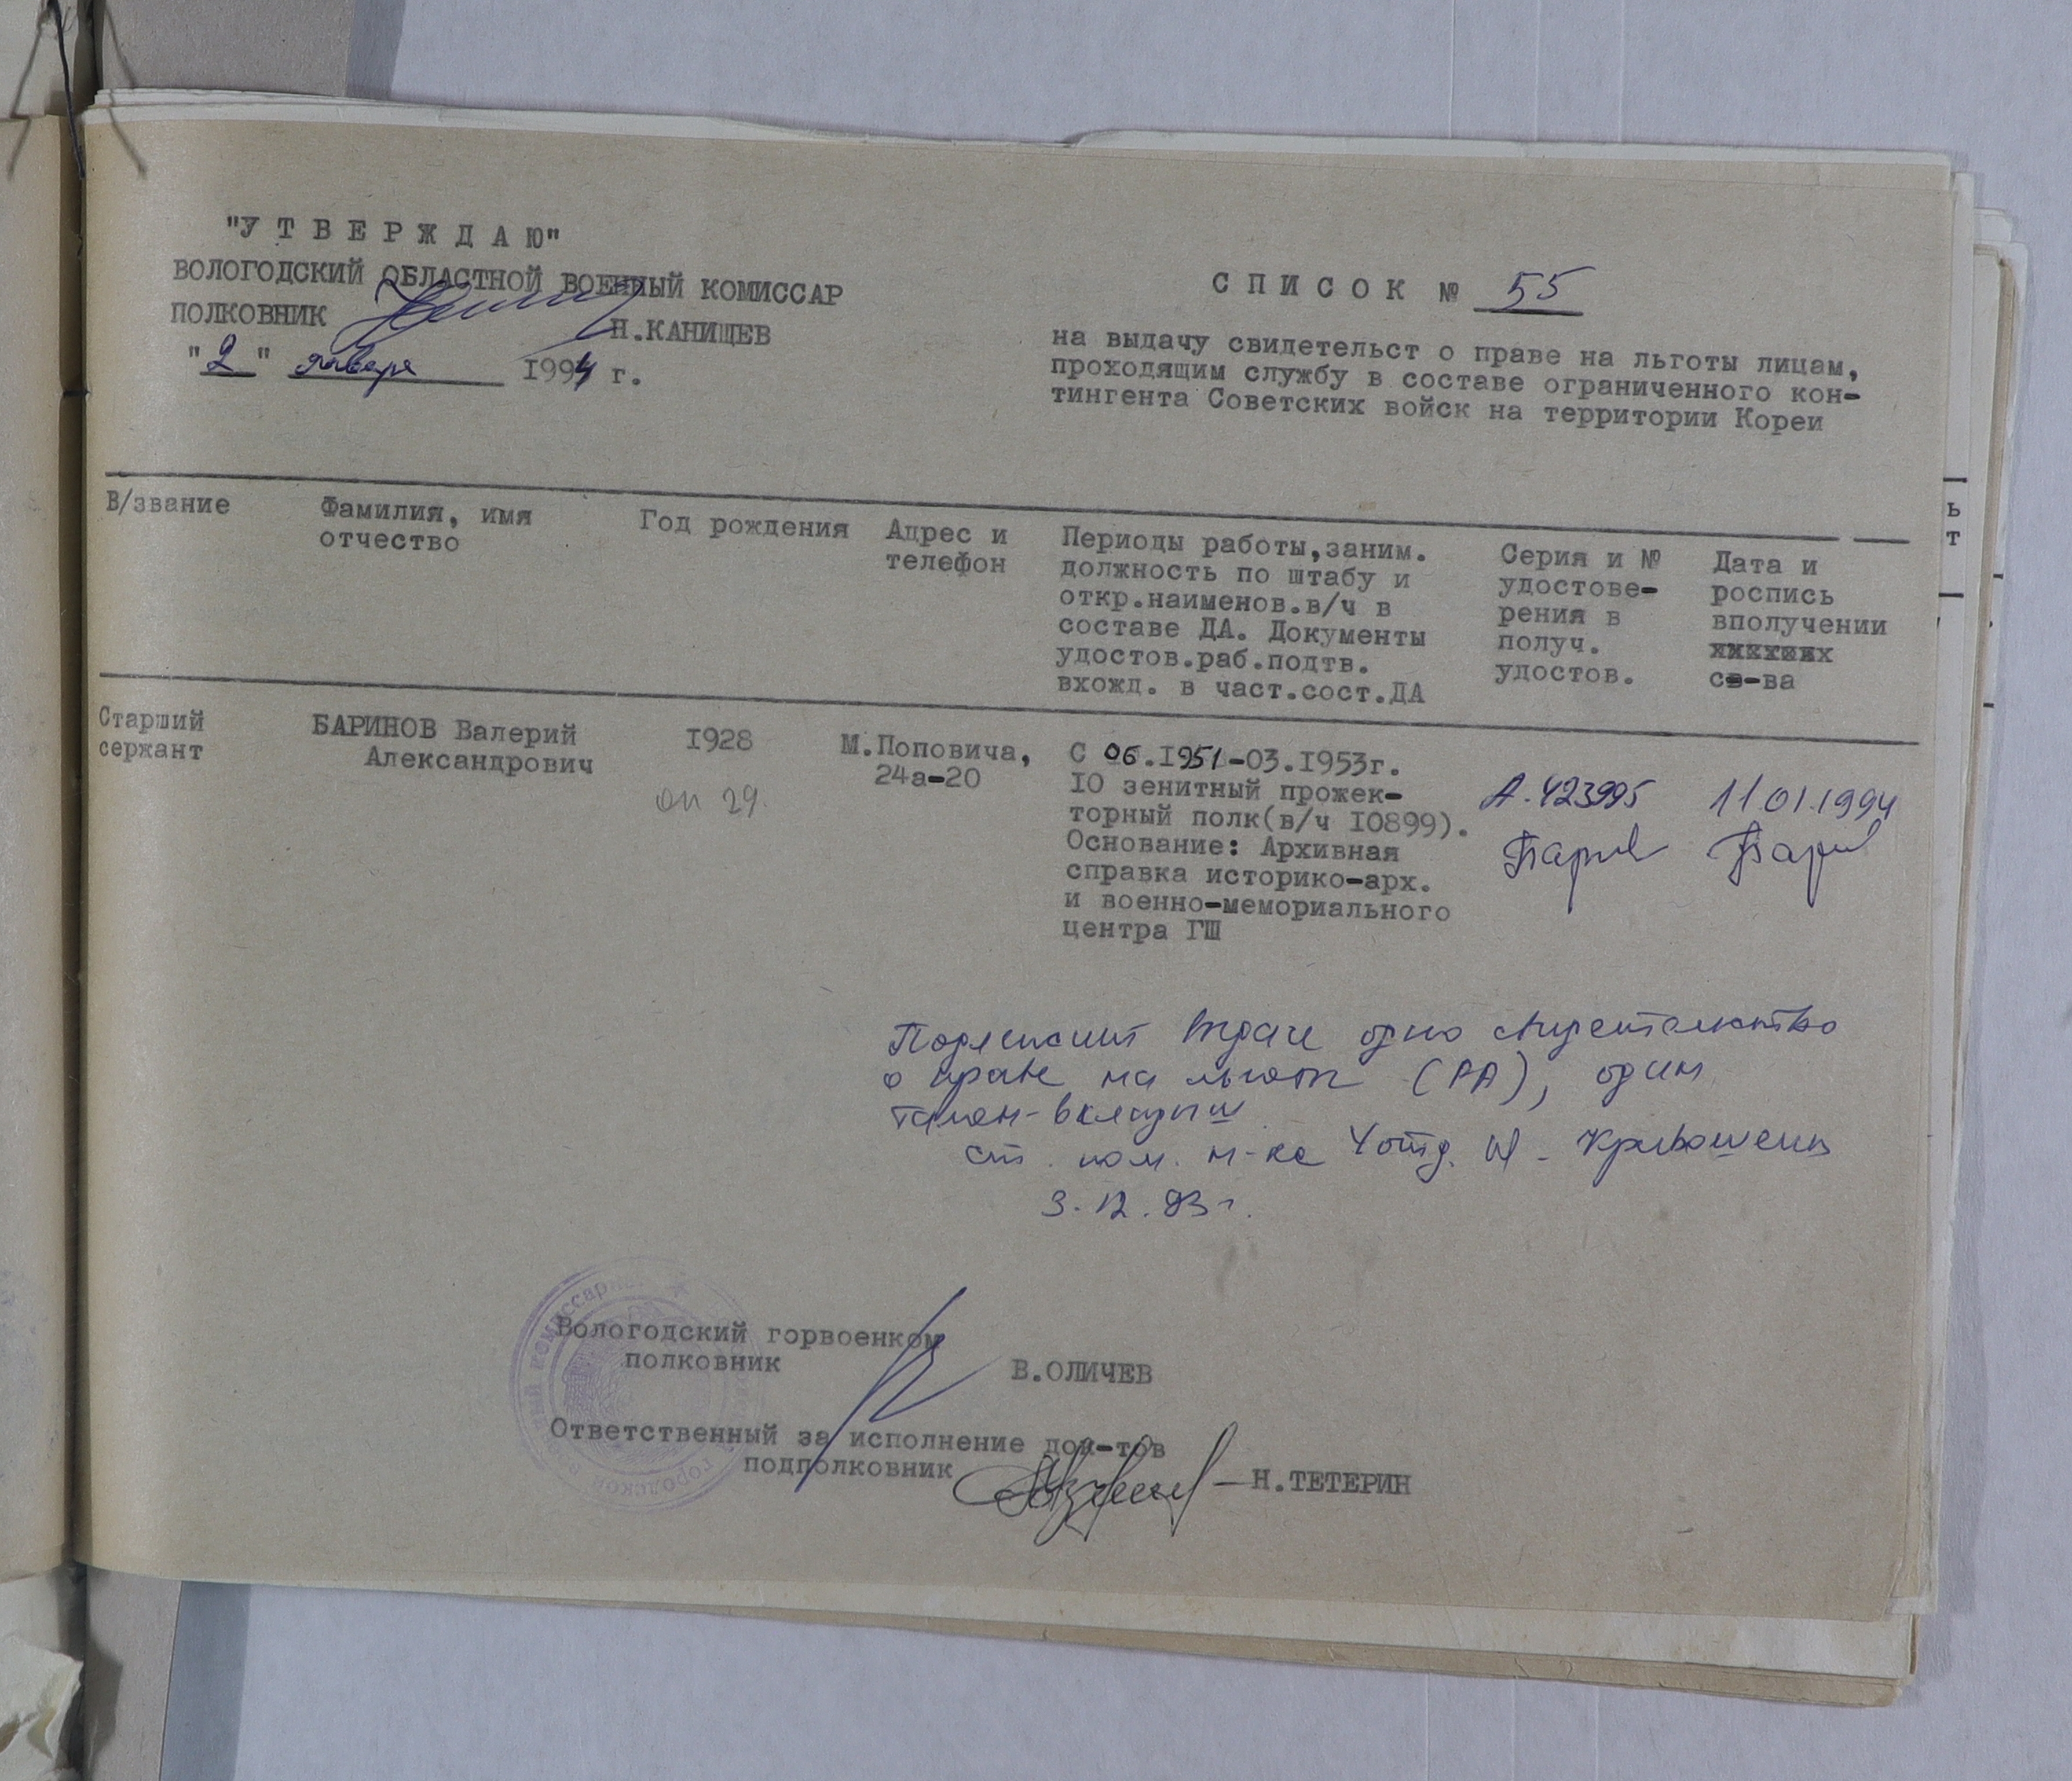 "У Т В Е Р Ж Д А Ю"
ВОЛОГОДСКИЙ ОБЛАСТНОЙ ВОЕННЫЙ КОМИССАР
ПОЛКОВНИК Н.КАНИЩЕВ
"2" января 1994 г.
С П И С О К № 55
на выдачу свидетельст о праве на льготы лицам,
проходящим службу в составе ограниченного кон-
тингента Советских войск на территории Кореи
В/звание
Фамилия, имя
отчество
Год рождения
Адрес и
телефон
Периоды работы,заним.
должность по штабу и
откр.наименов.в/ч в
составе ДА. Документы
удостов.раб.подтв.
вхожд. в част.сост.ДА
Серия и №
удостове-
рения в
получ.
удостов.
Дата и
роспись
вполучении
св-ва
Старший
сержант
БАРИНОВ Валерий
Александрович
I928
оп 29.
М.Поповича,
24а-20
С 06.I951-03.I953г.
IO зенитный прожек-
торный полк(в/ч IO899).
Основание: Архивная
справка историко-арх.
и военно-мемориального
центра ГШ
А.423995
11 01.1994
Подлежит выдаче одно свидетельство
о праве на льготы (РА), один
талон-вкладыш
ст. пом. н-ка 4 отд. Кривошеин
3.12.93г.
Вологодский горвоенком
полковник
В.ОЛИЧЕВ
Ответственный за исполнение док-тов
подполковник
Н.ТЕТЕРИН
ь
т